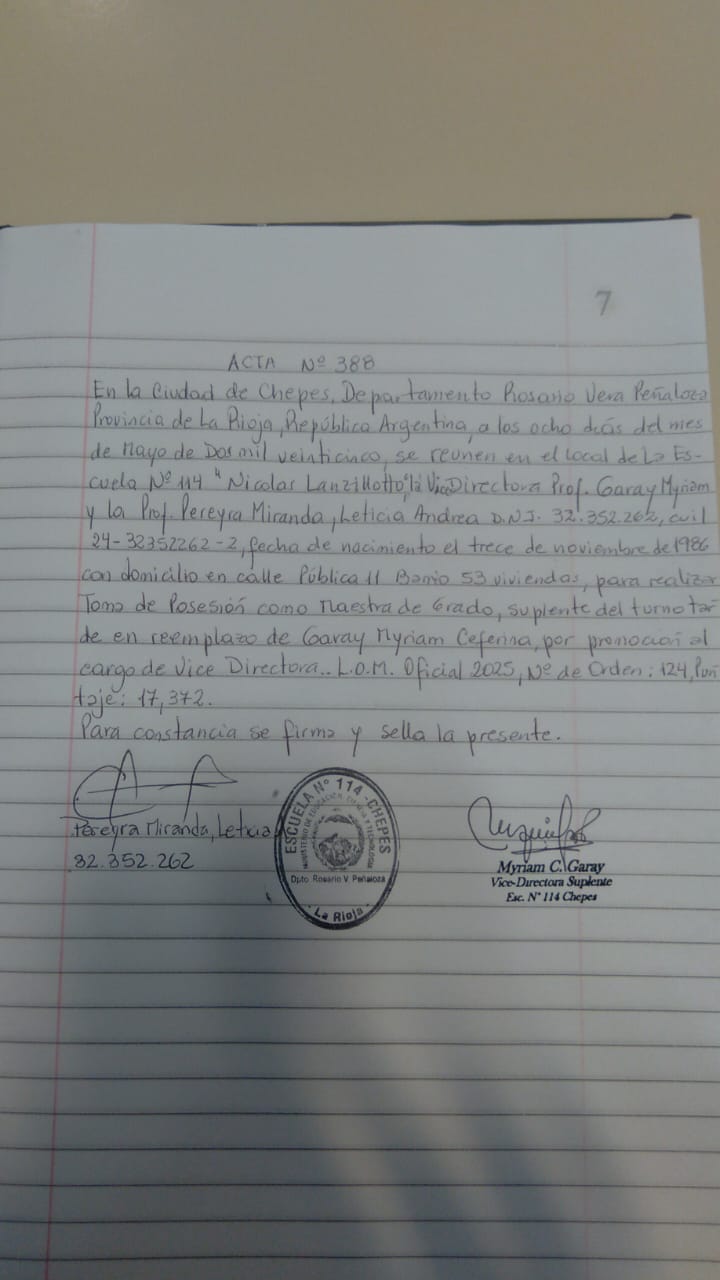 7
ACTA Nº 388
En la Ciudad de Chepes, Departamento Rosario Vera Peñaloza
Provincia de La Rioja, República Argentina, a los ocho días del mes
de Mayo de Dos mil veinticinco, se reunen en el local de La Es-
cuela Nº 114 "Nicolas Lanzillotto", la ViceDirectora Prof. Garay Myriam
y la Prof. Pereyra Miranda, Leticia Andrea D.N.I. 32.352.262, cuil
24-32352262-2, fecha de nacimiento el trece de noviembre de 1986
con domicilio en calle Pública 11 Barrio 53 viviendas, para realizar
Toma de Posesión como Maestra de Grado, suplente del turno tar
de en reemplazo de Garay Myriam Ceferina, por promoción al
cargo de Vice Directora.. L.O.M. Oficial 2025, Nº de Orden: 124, Pun
taje: 17,372.
Para constancia se firma y sella la presente.
Pereyra Miranda, Leticia
32.352.262
ESCUELA Nº 114 - CHEPES
MINISTERIO DE EDUCACION, CIENCIA Y TECNOLOGIA
Dpto Rosario V. Peñaloza
- La Rioja -
Myriam C. Garay
Vice-Directora Suplente
Esc. Nº 114 Chepes